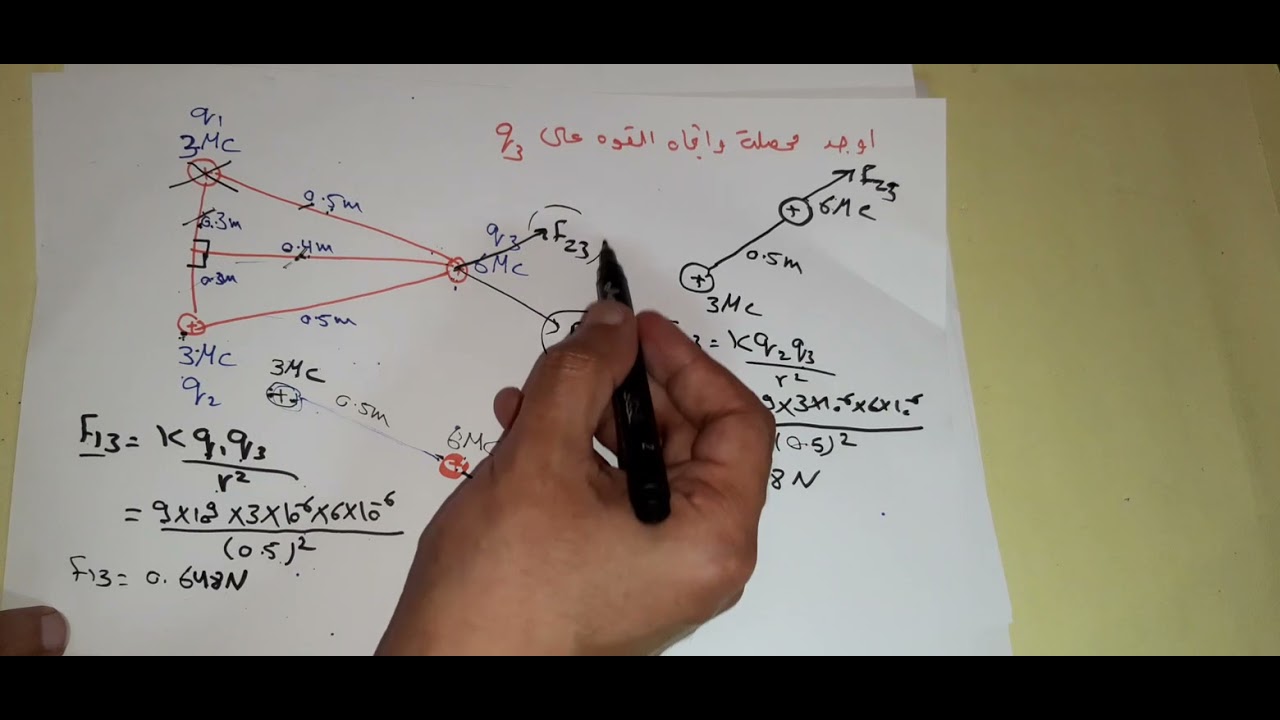 اوجد محصلة واتجاه القوه على q₃
q₁
3MC
0.5m
0.3m
0.4m
0.3m
q₃
6MC
F₂₃
0.5m
3MC
q₂
F₂₃
6MC
0.5m
3MC
3MC
0.5m
6MC
F₁₃ = K q₁ q₃
r²
= 9×10⁹ ×3×10⁻⁶×6×10⁻⁶
(0.5)²
F₁₃ = 0.648N
= K q₂ q₃
r²
9×3×10⁻⁶×6×10⁻⁶
(0.5)²
8N